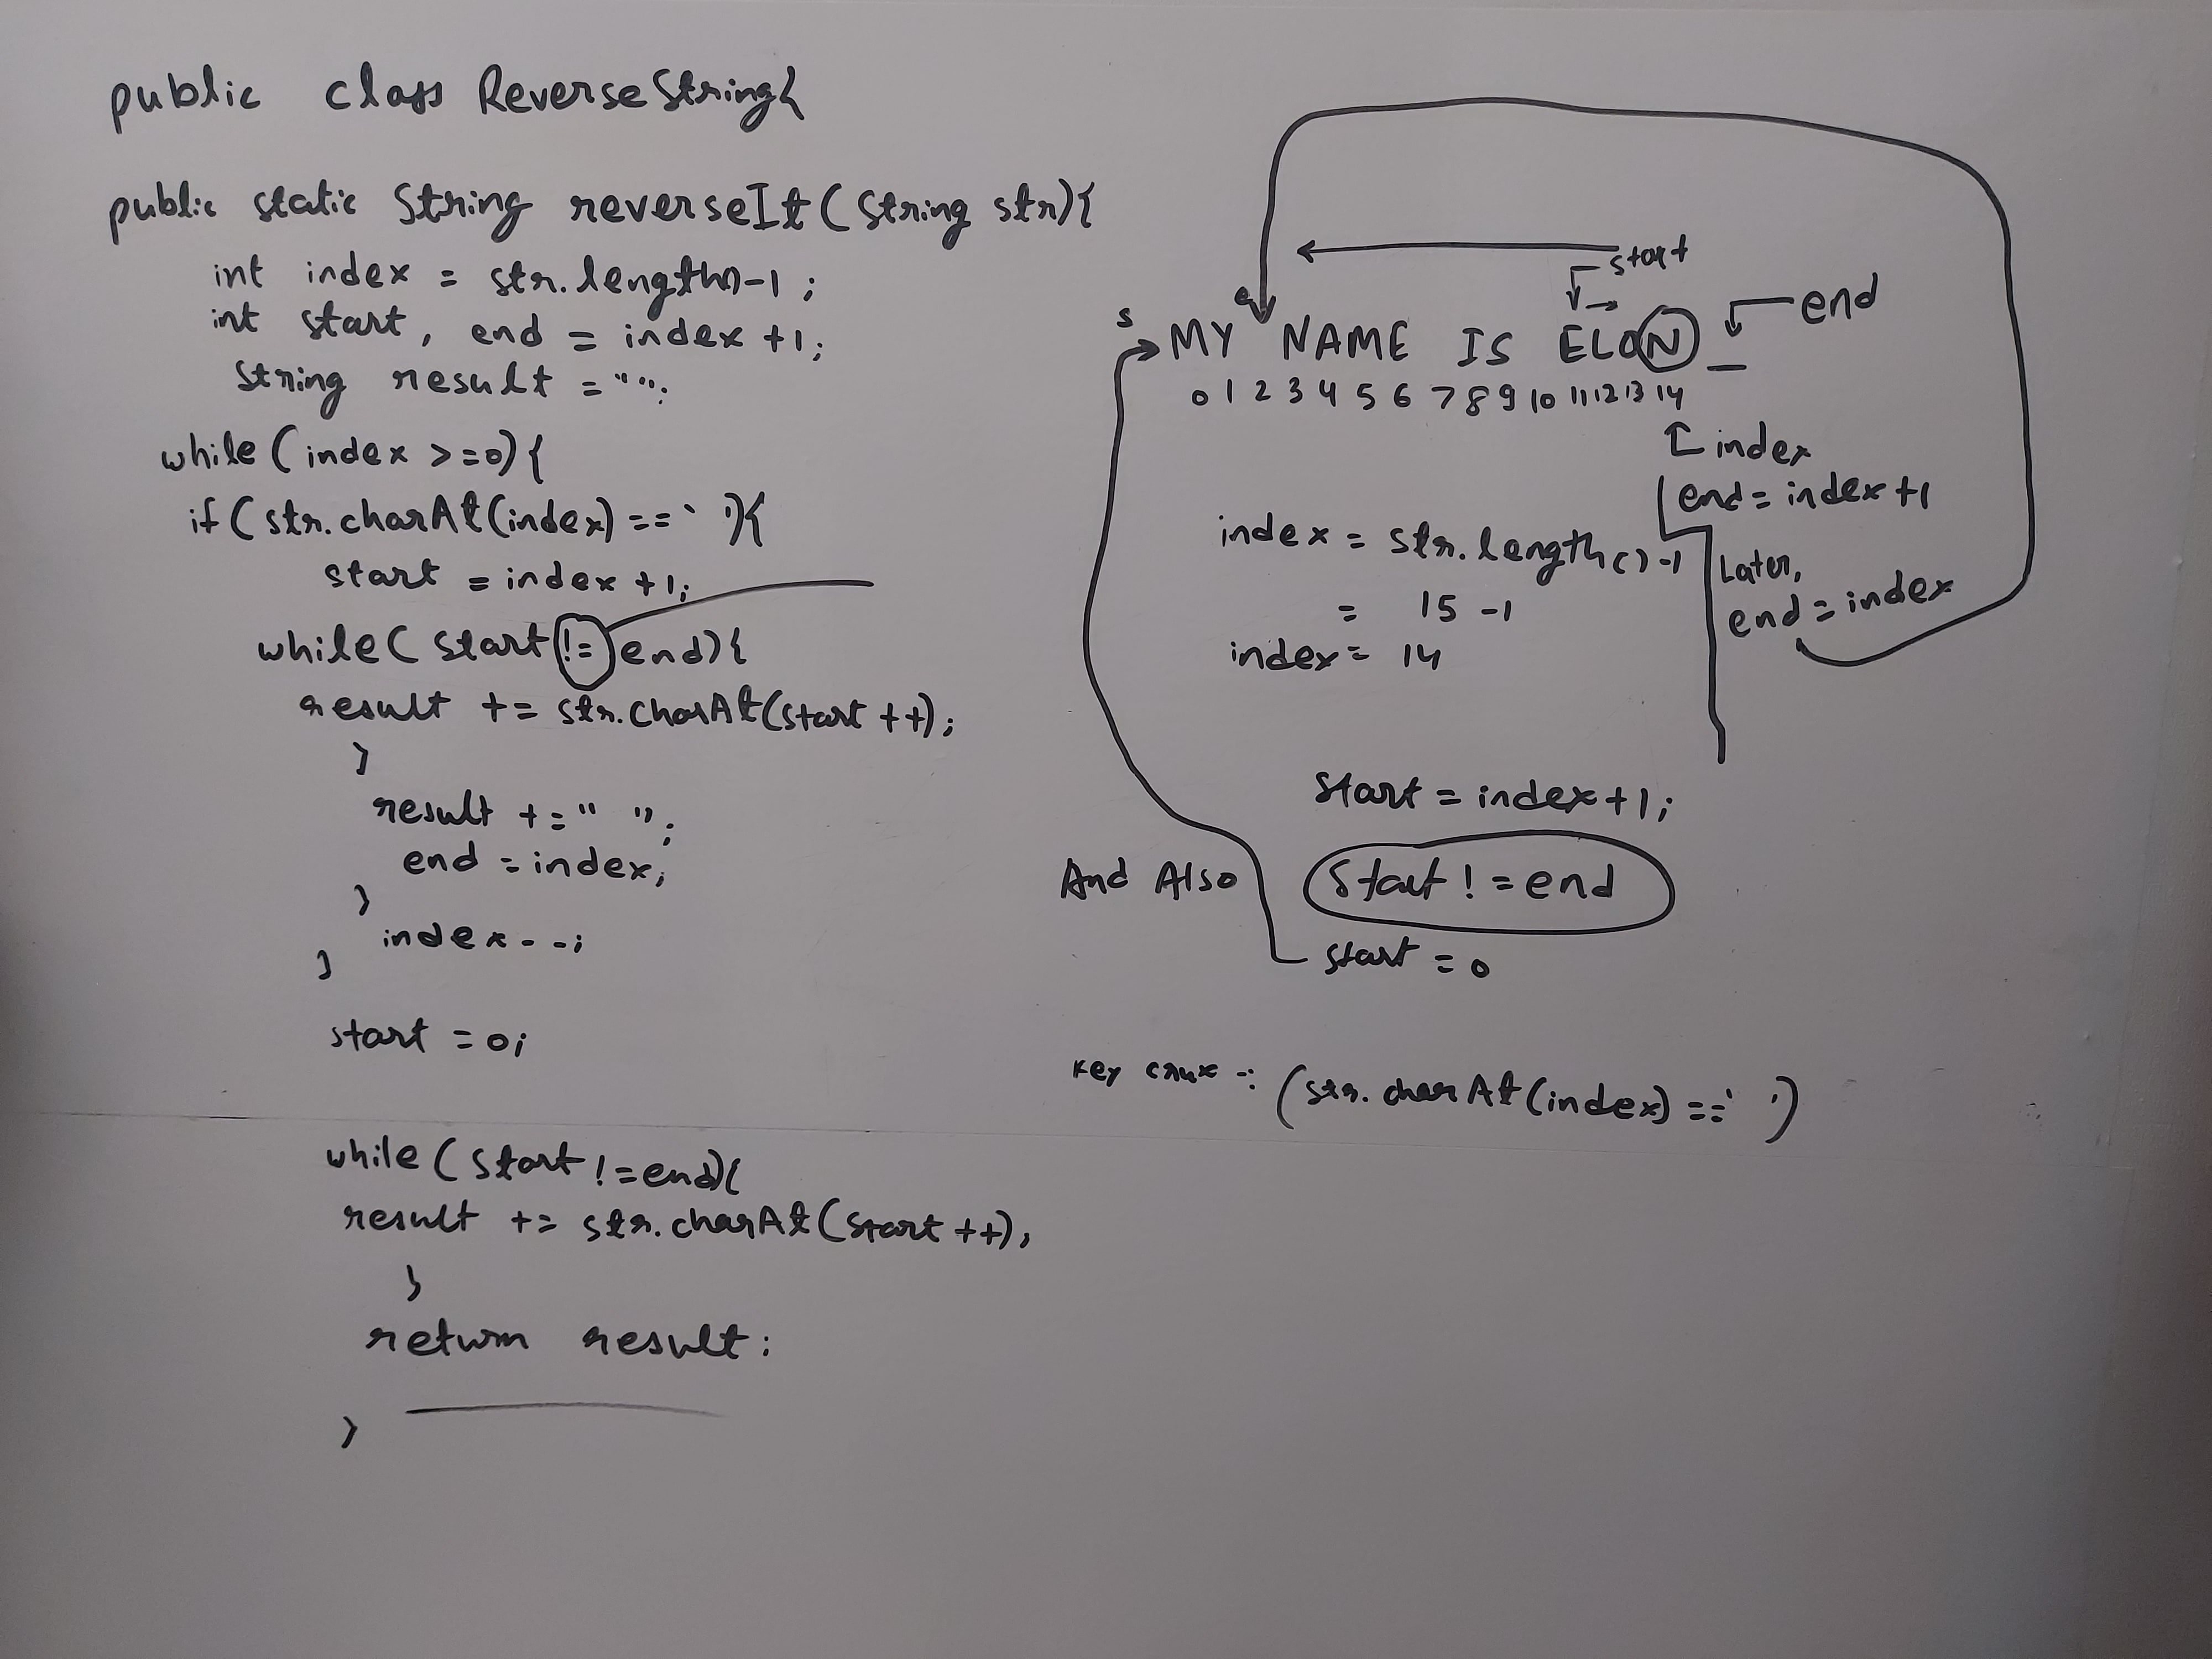 public class ReverseString{
public static String reverseIt(String str){
int index = str.length()-1;
int start, end = index +1;
String result = "";
while(index >=0){
if(str.charAt(index) == ' '){
start = index +1;
while(start != end){
result += str.charAt(start++);
}
result += " ";
end = index;
}
index--;
}
start = 0;
while(start != end){
result += str.charAt(start++);
}
return result;
}
start
end
s
e
MY NAME IS ELON _
0 1 2 3 4 5 6 7 8 9 10 11 12 13 14
index
end = index +1
index = str.length() -1
= 15 -1
index = 14
Later,
end = index
start = index+1;
And Also start != end
start = 0
Key crux -: (str.charAt(index) == ' ')